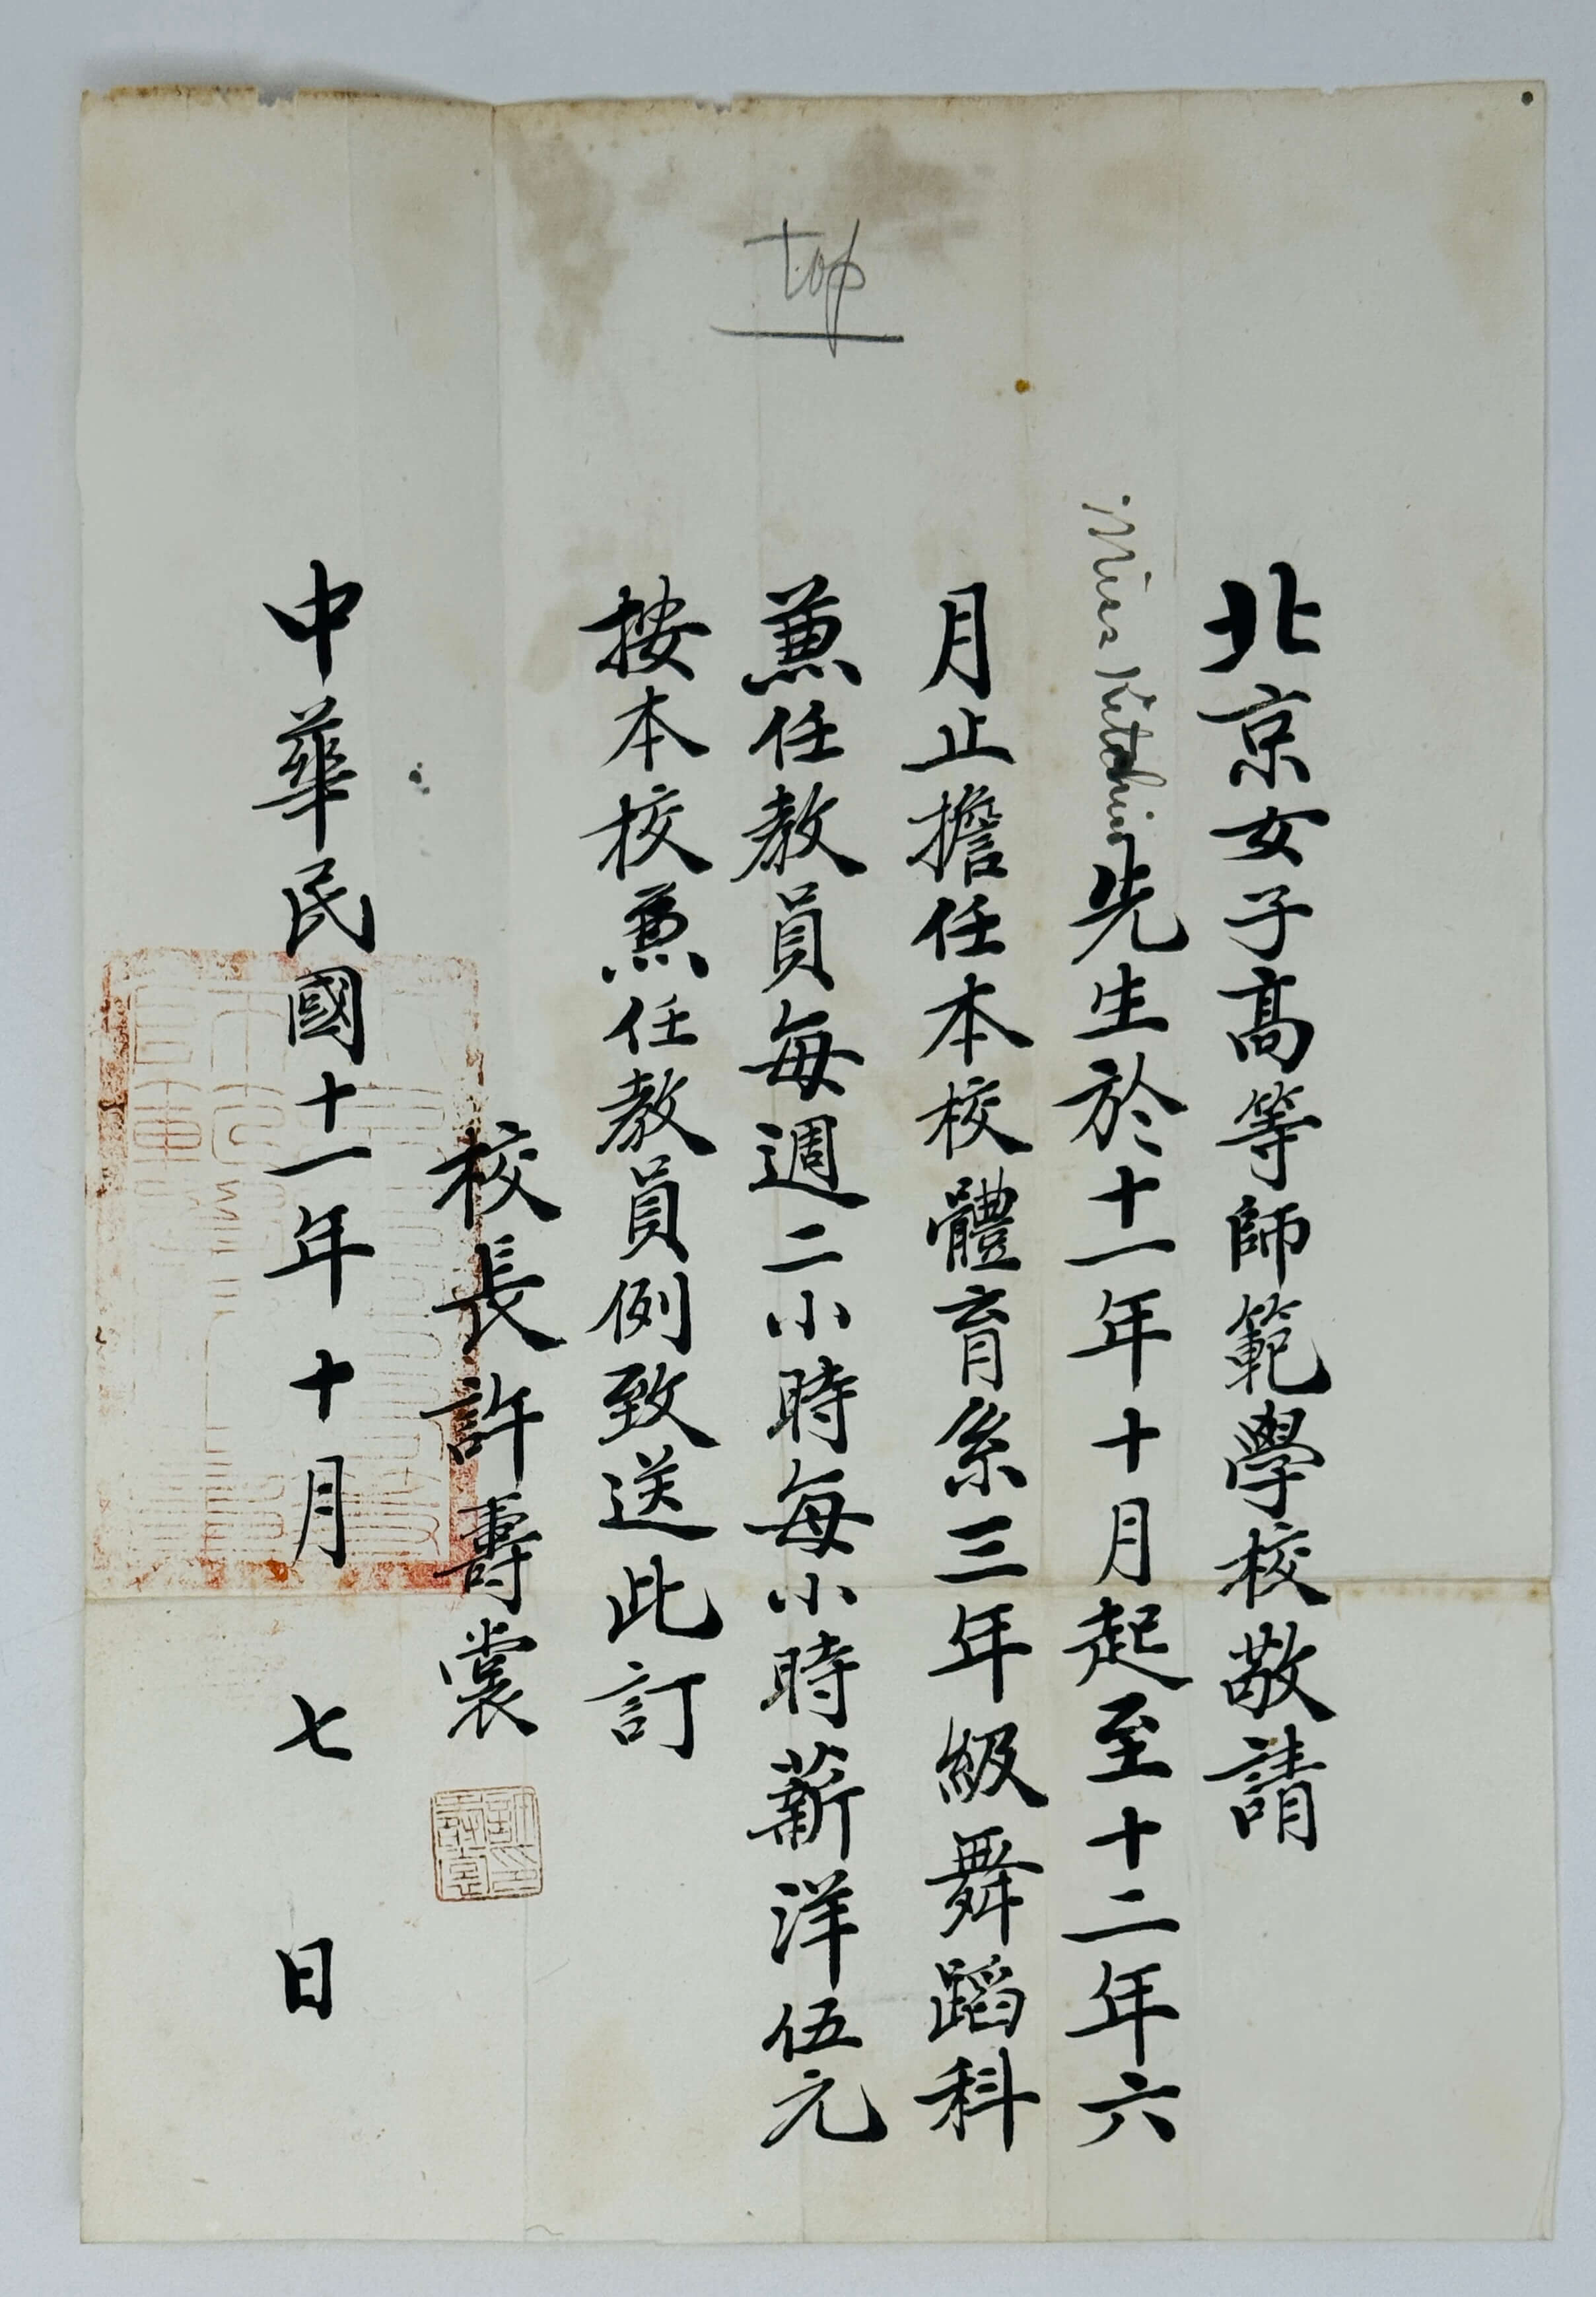 top
北京女子高等師範學校敬請
Miss Kitchin先生於十一年十月起至十二年六
月止擔任本校體育系三年級舞蹈科
兼任教員每週二小時每小時薪洋伍元
按本校兼任教員例致送此訂
校長許壽裳
中華民國十一年十月七日